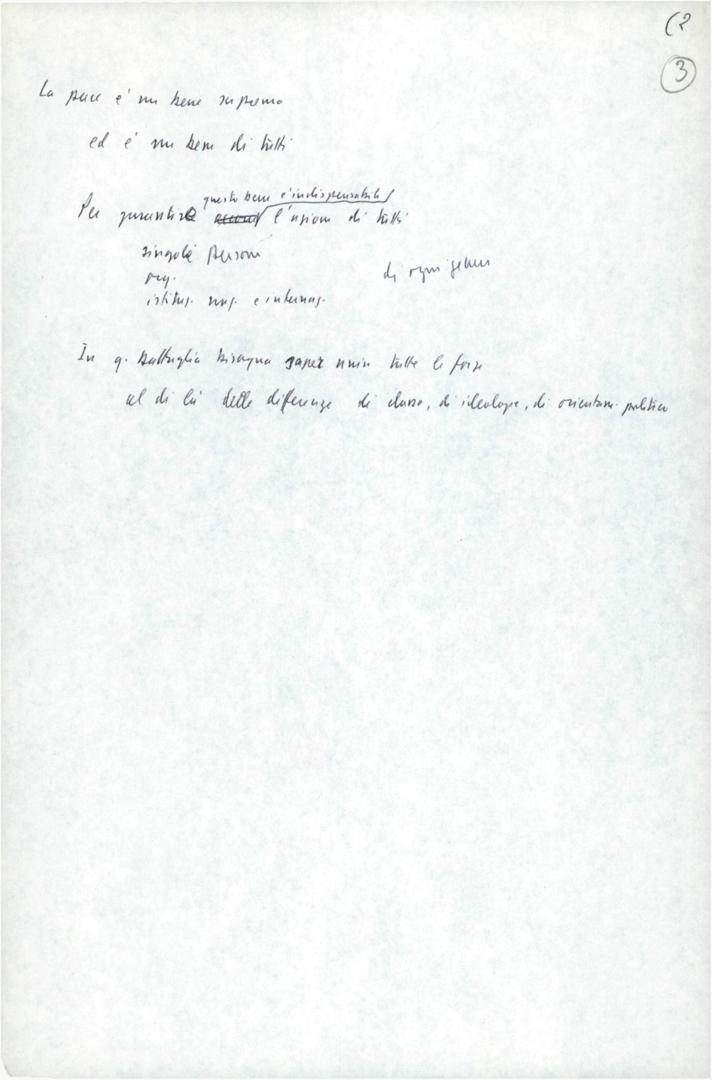 (2
3
La pace e' un bene supremo
ed e' un bene di tutti
questo bene e' indispensabile
Per garantire l'azione di tutti
singole persone
org. di ogni genere
istituz. naz. e internaz.
In q. battaglia bisogna saper unire tutte le forze
al di là delle differenze di classe, di ideologie, di orientam. politico